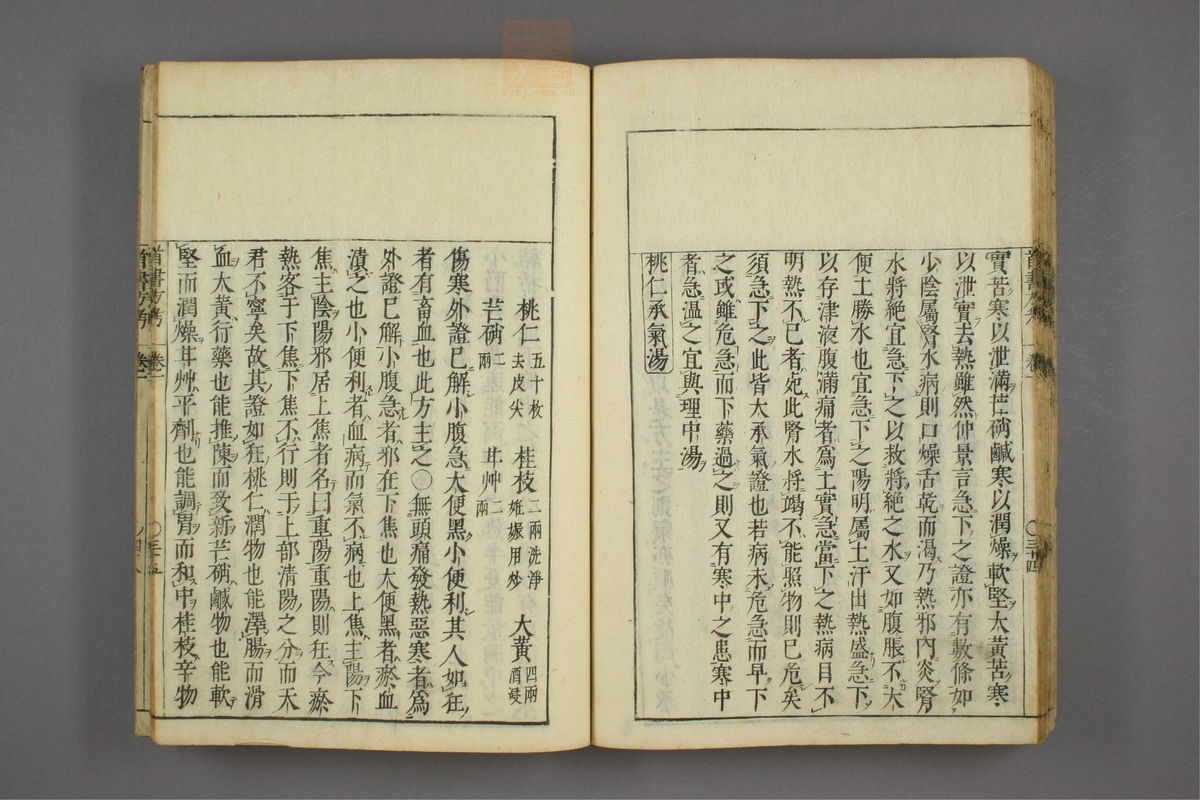 實苦寒以泄滿芒硝鹹寒以潤燥軟堅大黃苦寒
以泄實去熱雖然仲景言急下之證亦有數條如
少陰屬腎水病則口燥舌乾而渴乃熱邪內炎腎
水將絕宜急下之以救將絕之水又如腹脹不大
便土勝水也宜急下之陽明屬土汗出熱盛急下
以存津液腹滿痛者爲土實急當下之熱病目不
明熱不已者死此腎水將竭不能照物則已危矣
須急下之此皆大承氣證也若病未危急而早下
之或雖危急而下藥過之則又有寒中之患寒中
者急溫之宜與理中湯
桃仁承氣湯
桃仁五十枚去皮尖 桂枝二兩洗淨 大黃四兩酒
芒硝二兩 甘艸二兩
傷寒外證已解小腹急大便黑小便利其人如狂
者有畜血也此方主之○無頭痛發熱惡寒者爲
外證已解小腹急者邪在下焦也大便黑者瘀血
漬之也小便利者血病而氣不病也上焦主陽下
焦主陰陽邪居上焦者名曰重陽重陽則狂今瘀
熱客于下焦下焦不行則干上部清陽之分而天
君不寧矣故其證如狂桃仁潤物也能澤腸而滑
血大黃行藥也能推陳而致新芒硝鹹物也能軟
堅而潤燥甘艸平劑也能調胃而和中桂枝辛物
首書方考 卷一